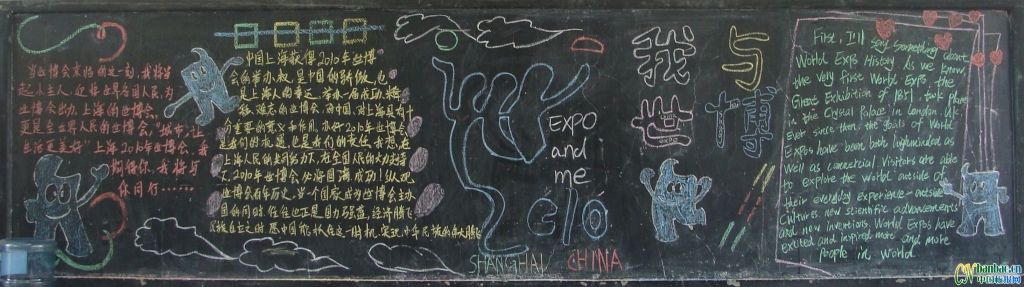 当世博会来临的这一刻,我将当
起小主人,迎接世界各国人民,为
世博会出力,上海的世博会,
更是全世界人民的世博会,"城市,让
生活更美好"上海2010年世博会,我
期待你,我将与
你同行……
中国上海获得2010年世博
会的举办权,是中国的骄傲,也
是上海人的幸运,举办一届成功、精
彩、难忘的世博会,对中国,对上海具有十
分重要的意义和作用,办好2010年世博会,
是我们的承诺,也是我们的责任,我想,在
上海人民的共同努力下,在全国人民的大力支持
下,2010年世博会必将圆满成功!纵观
世博会百年历史,当一个国家成为世博会主办
国的同时,往往也正是国力强盛,经济腾飞
之时,愿中国能抓住这一时机,实现中华民族的伟大腾飞
EXPO
and
me
2010
SHANGHAI CHINA
我与
世博
First, I'll say something about
World Expo History. As we know,
the very first World Expo the
Great Exhibition of 1851 took place
in the Crystal Palace in London, UK.
Ever since then, the goals of World
Expos have been both
well as commercial. Visitors are able
to explore the world outside of
their everyday experience—outside
cultures, new scientific advancements
and new inventions. World Expos have
excited and inspired more and more
people in world.
banbao.cn
中国板报网